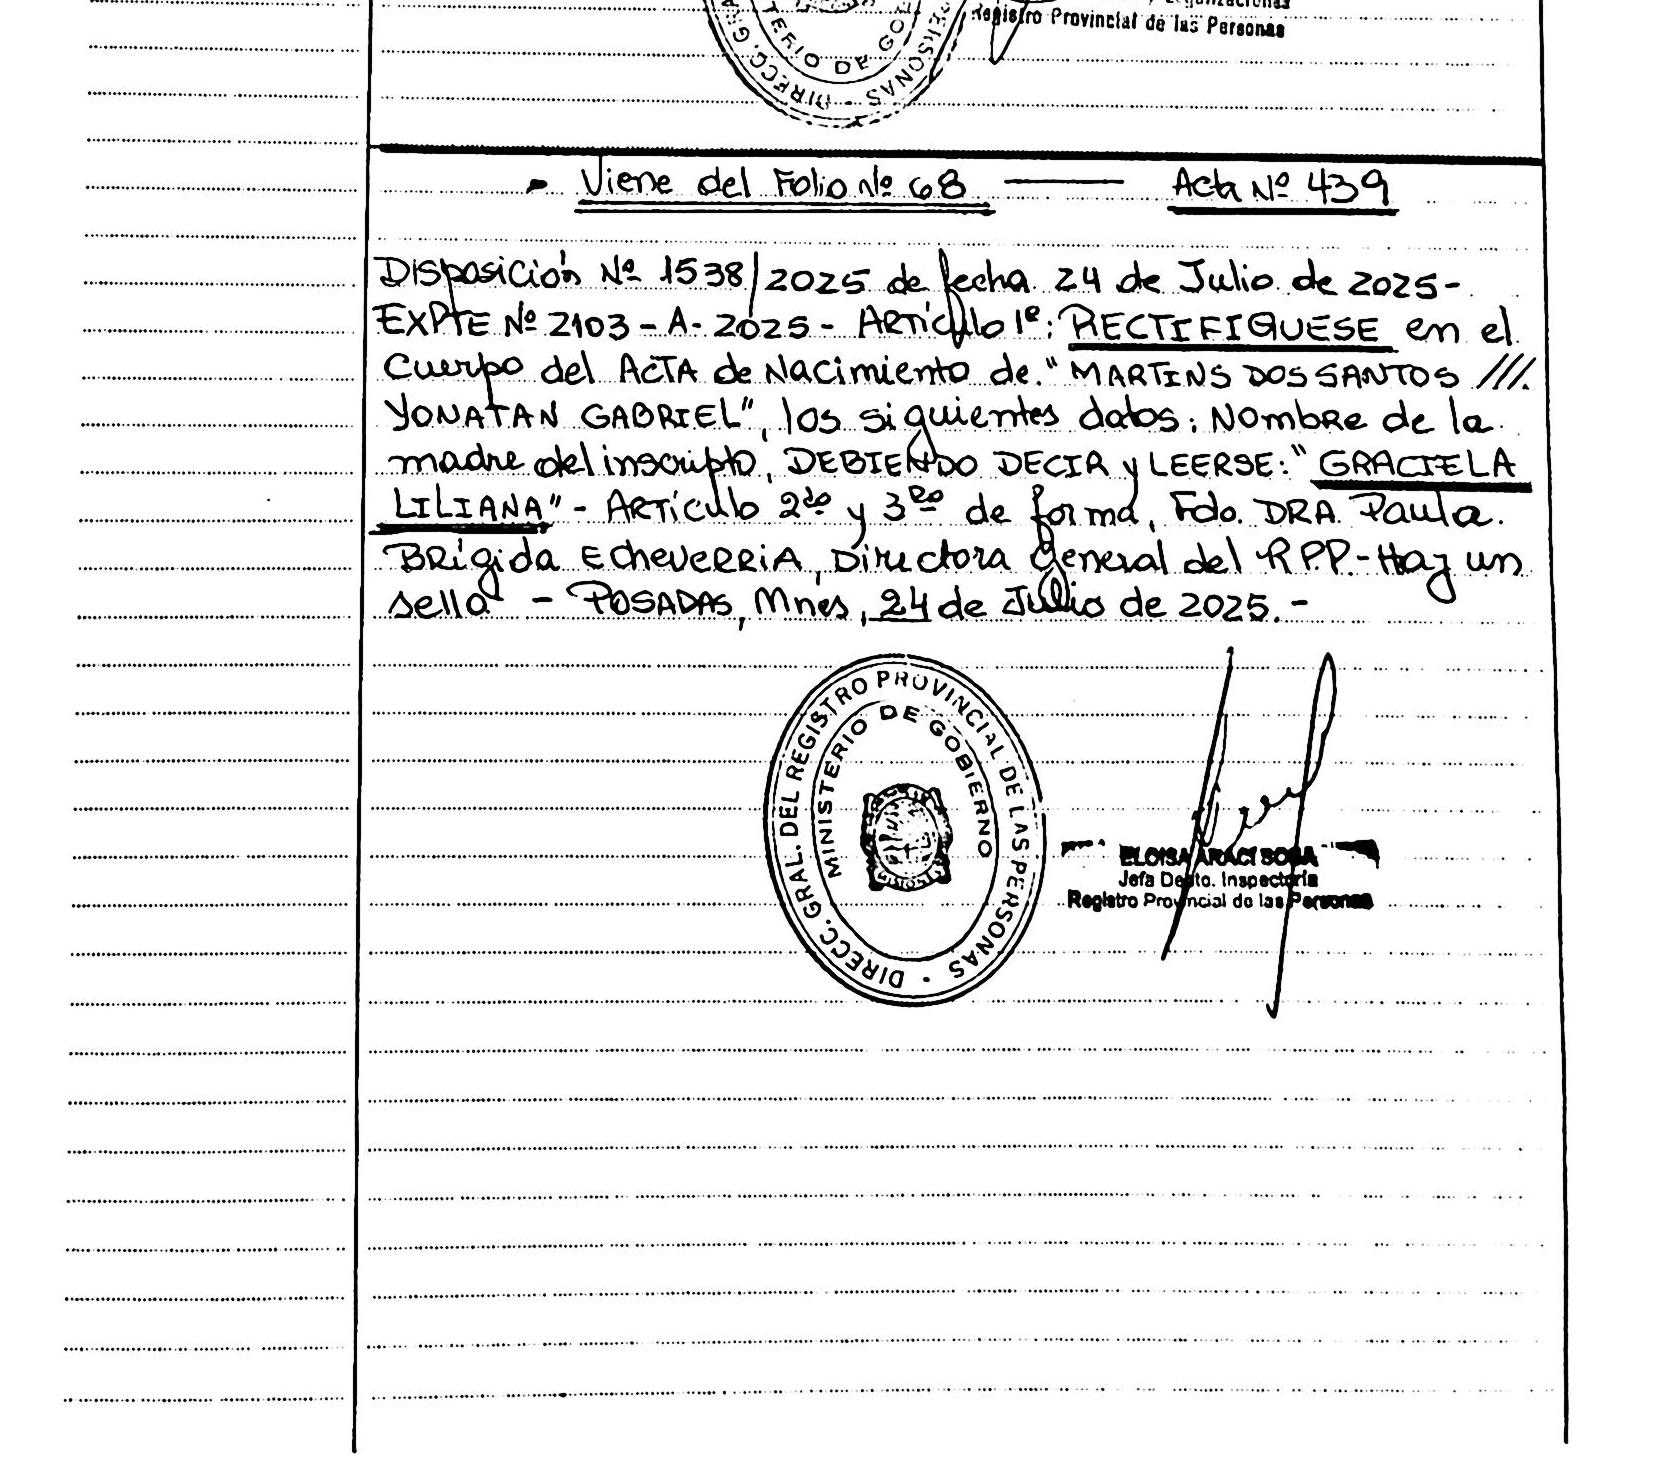 Registro Provincial de las Personas
TERIO DE GO
DIRECC. GRA
ERSONAS
- Viene del Folio Nº 68 —— Acta Nº 439
Disposición Nº 1538/2025 de fecha 24 de Julio de 2025-
EXPTE Nº 2103-A-2025- ARTículo 1º: RECTIFIQUESE en el
Cuerpo del ACTA de Nacimiento de "MARTINS DOS SANTOS ///.
YONATAN GABRIEL", los siguientes datos: Nombre de la
madre del inscripto, DEBIENDO DECIR y LEERSE: "GRACIELA
LILIANA" - ARTículo 2do y 3Ro de forma, Fdo. DRA. Paula
BRígida EcheVERRIA, Directora General del R.P.P.- Hay un
sello - POSADAS, Mnes, 24 de Julio de 2025.-
DIRECC. GRAL. DEL REGISTRO PROVINCIAL DE LAS PERSONAS
MINISTERIO DE GOBIERNO
ELOISA ARACI SOSA
Jefa Depto. Inspectoría
Registro Provincial de las Personas